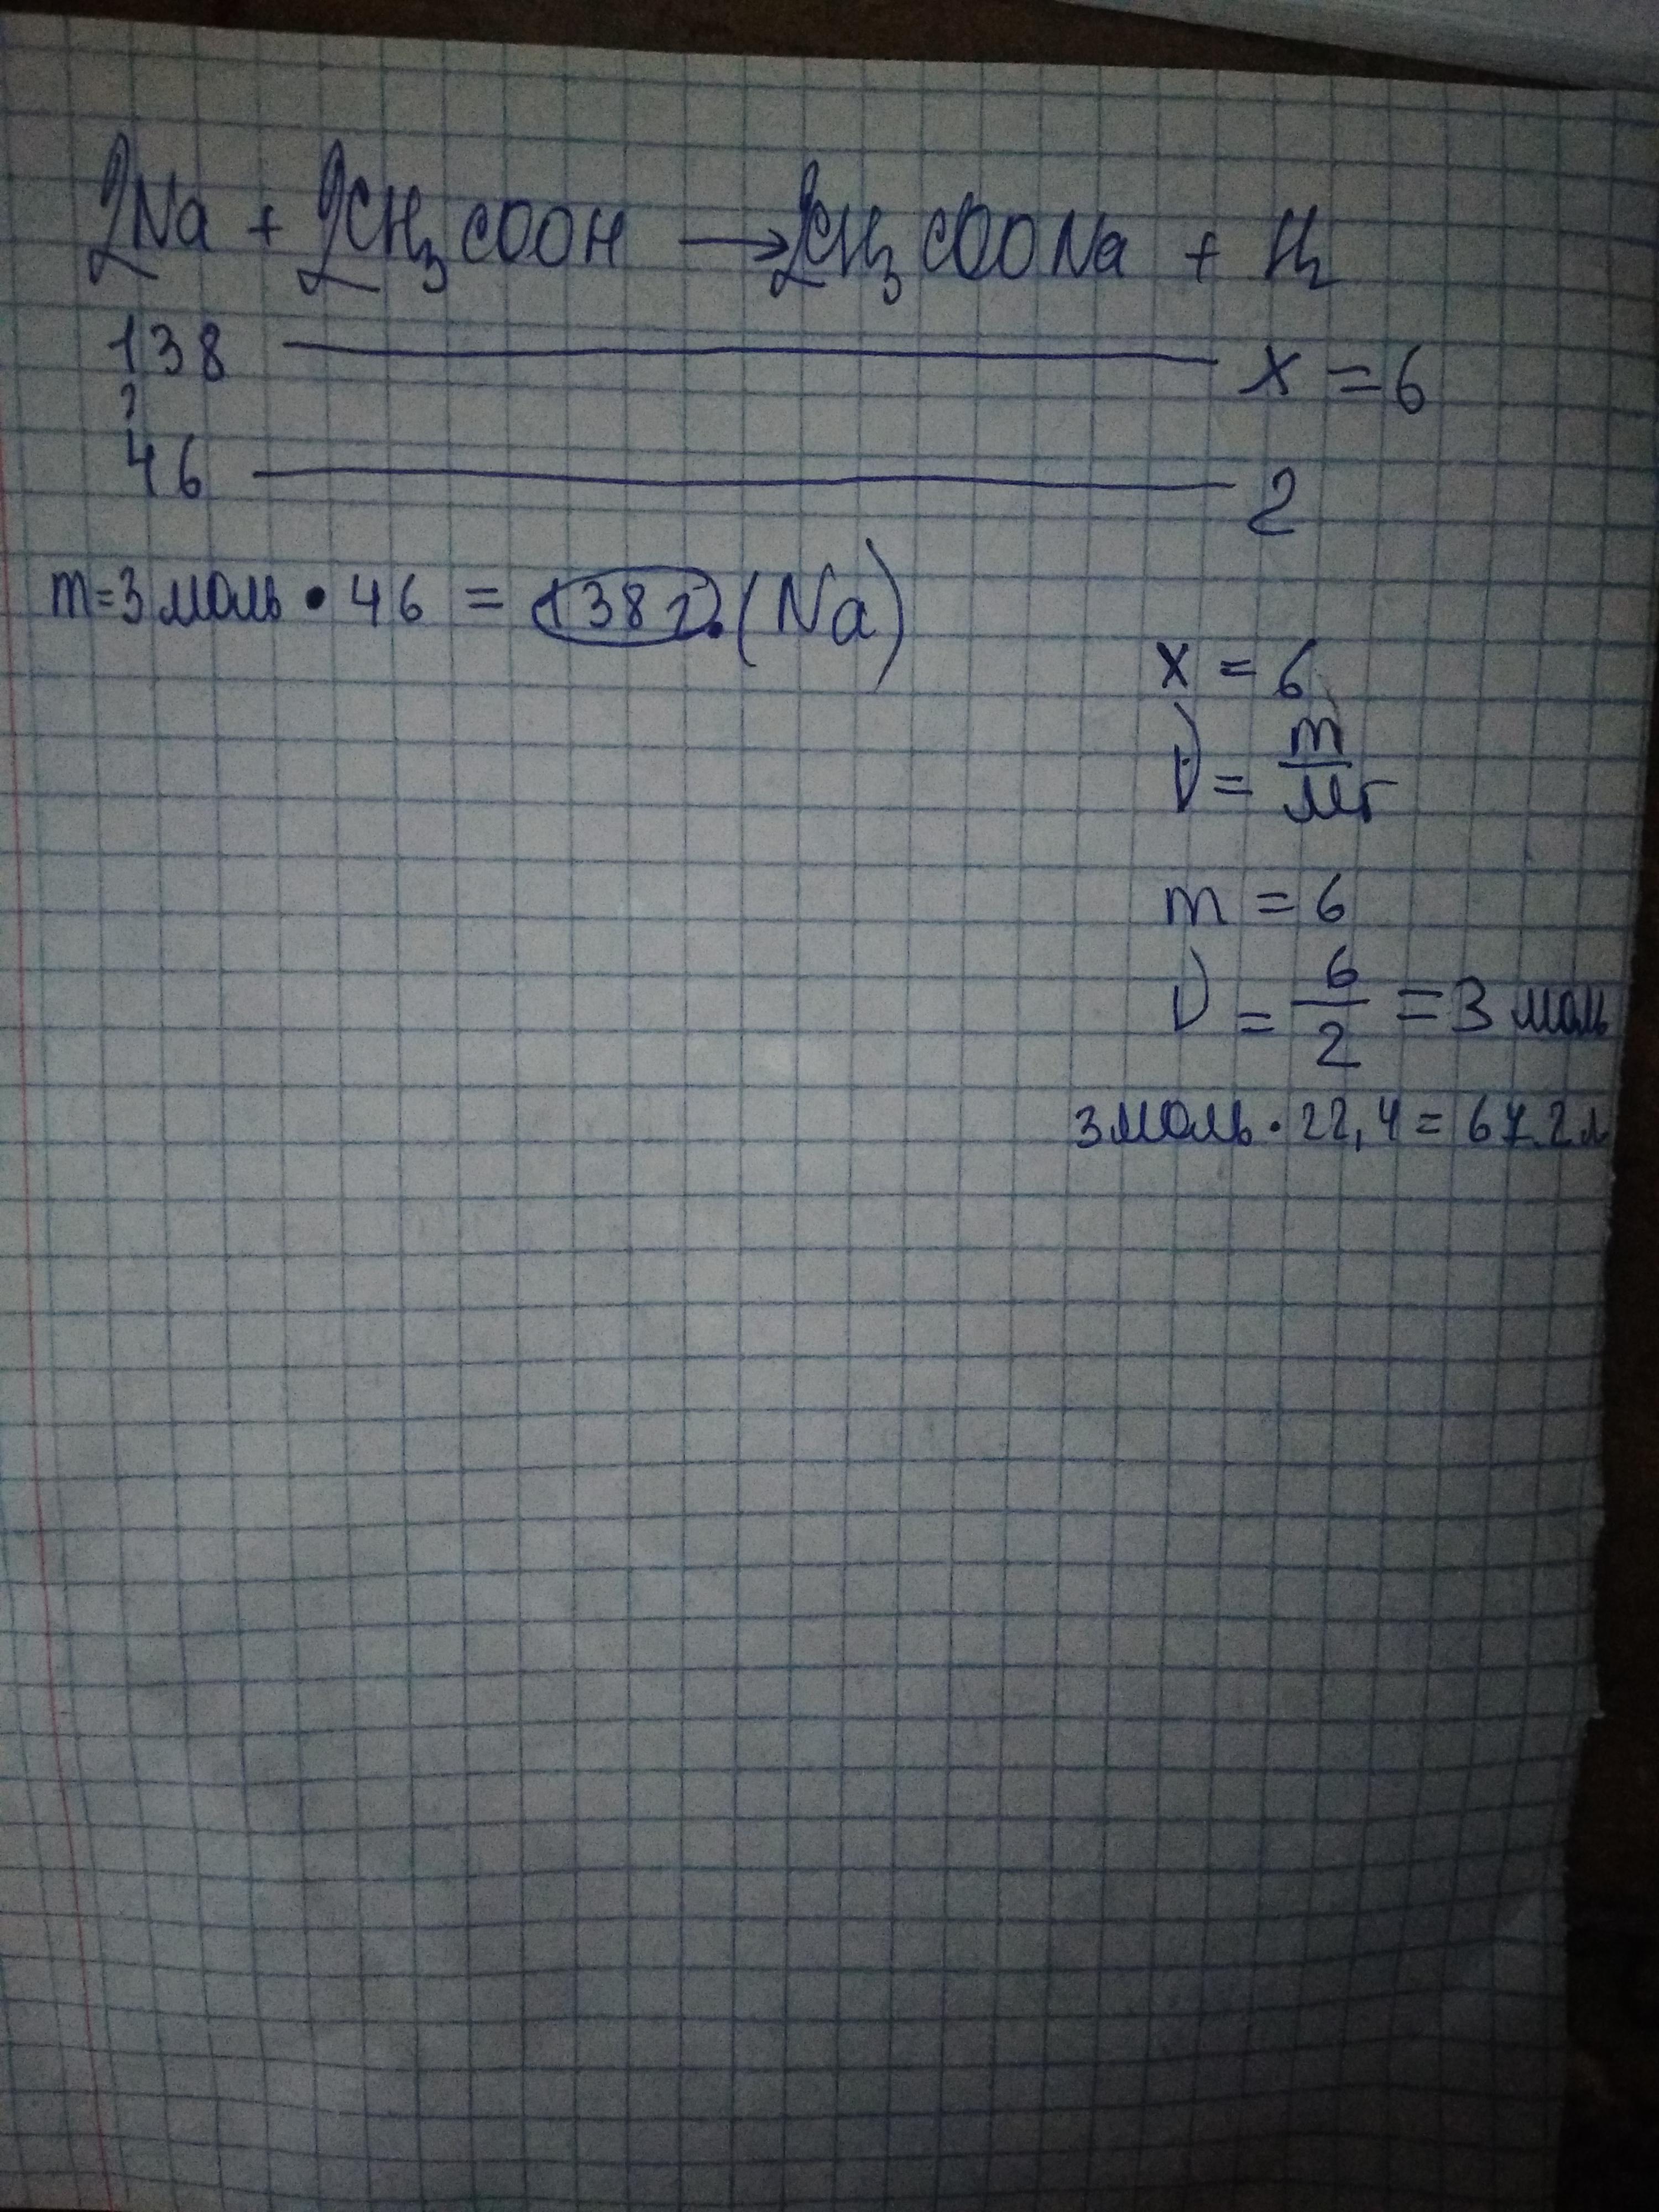 2Na + 2CH₃COOH → 2CH₃COONa + H₂
138 — x = 6
?
46 — 2
m = 3 моль • 46 = 138 г. (Na)
x = 6
ν = m/Mr
m = 6
ν = 6/2 = 3 моль
3 моль · 22,4 = 67.2 л